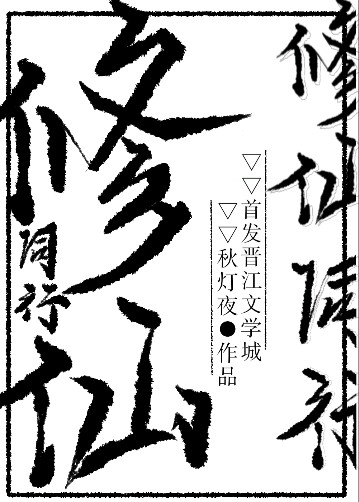 修仙同行
▽▽首发晋江文学城
▽▽秋灯夜●作品
修仙
同行